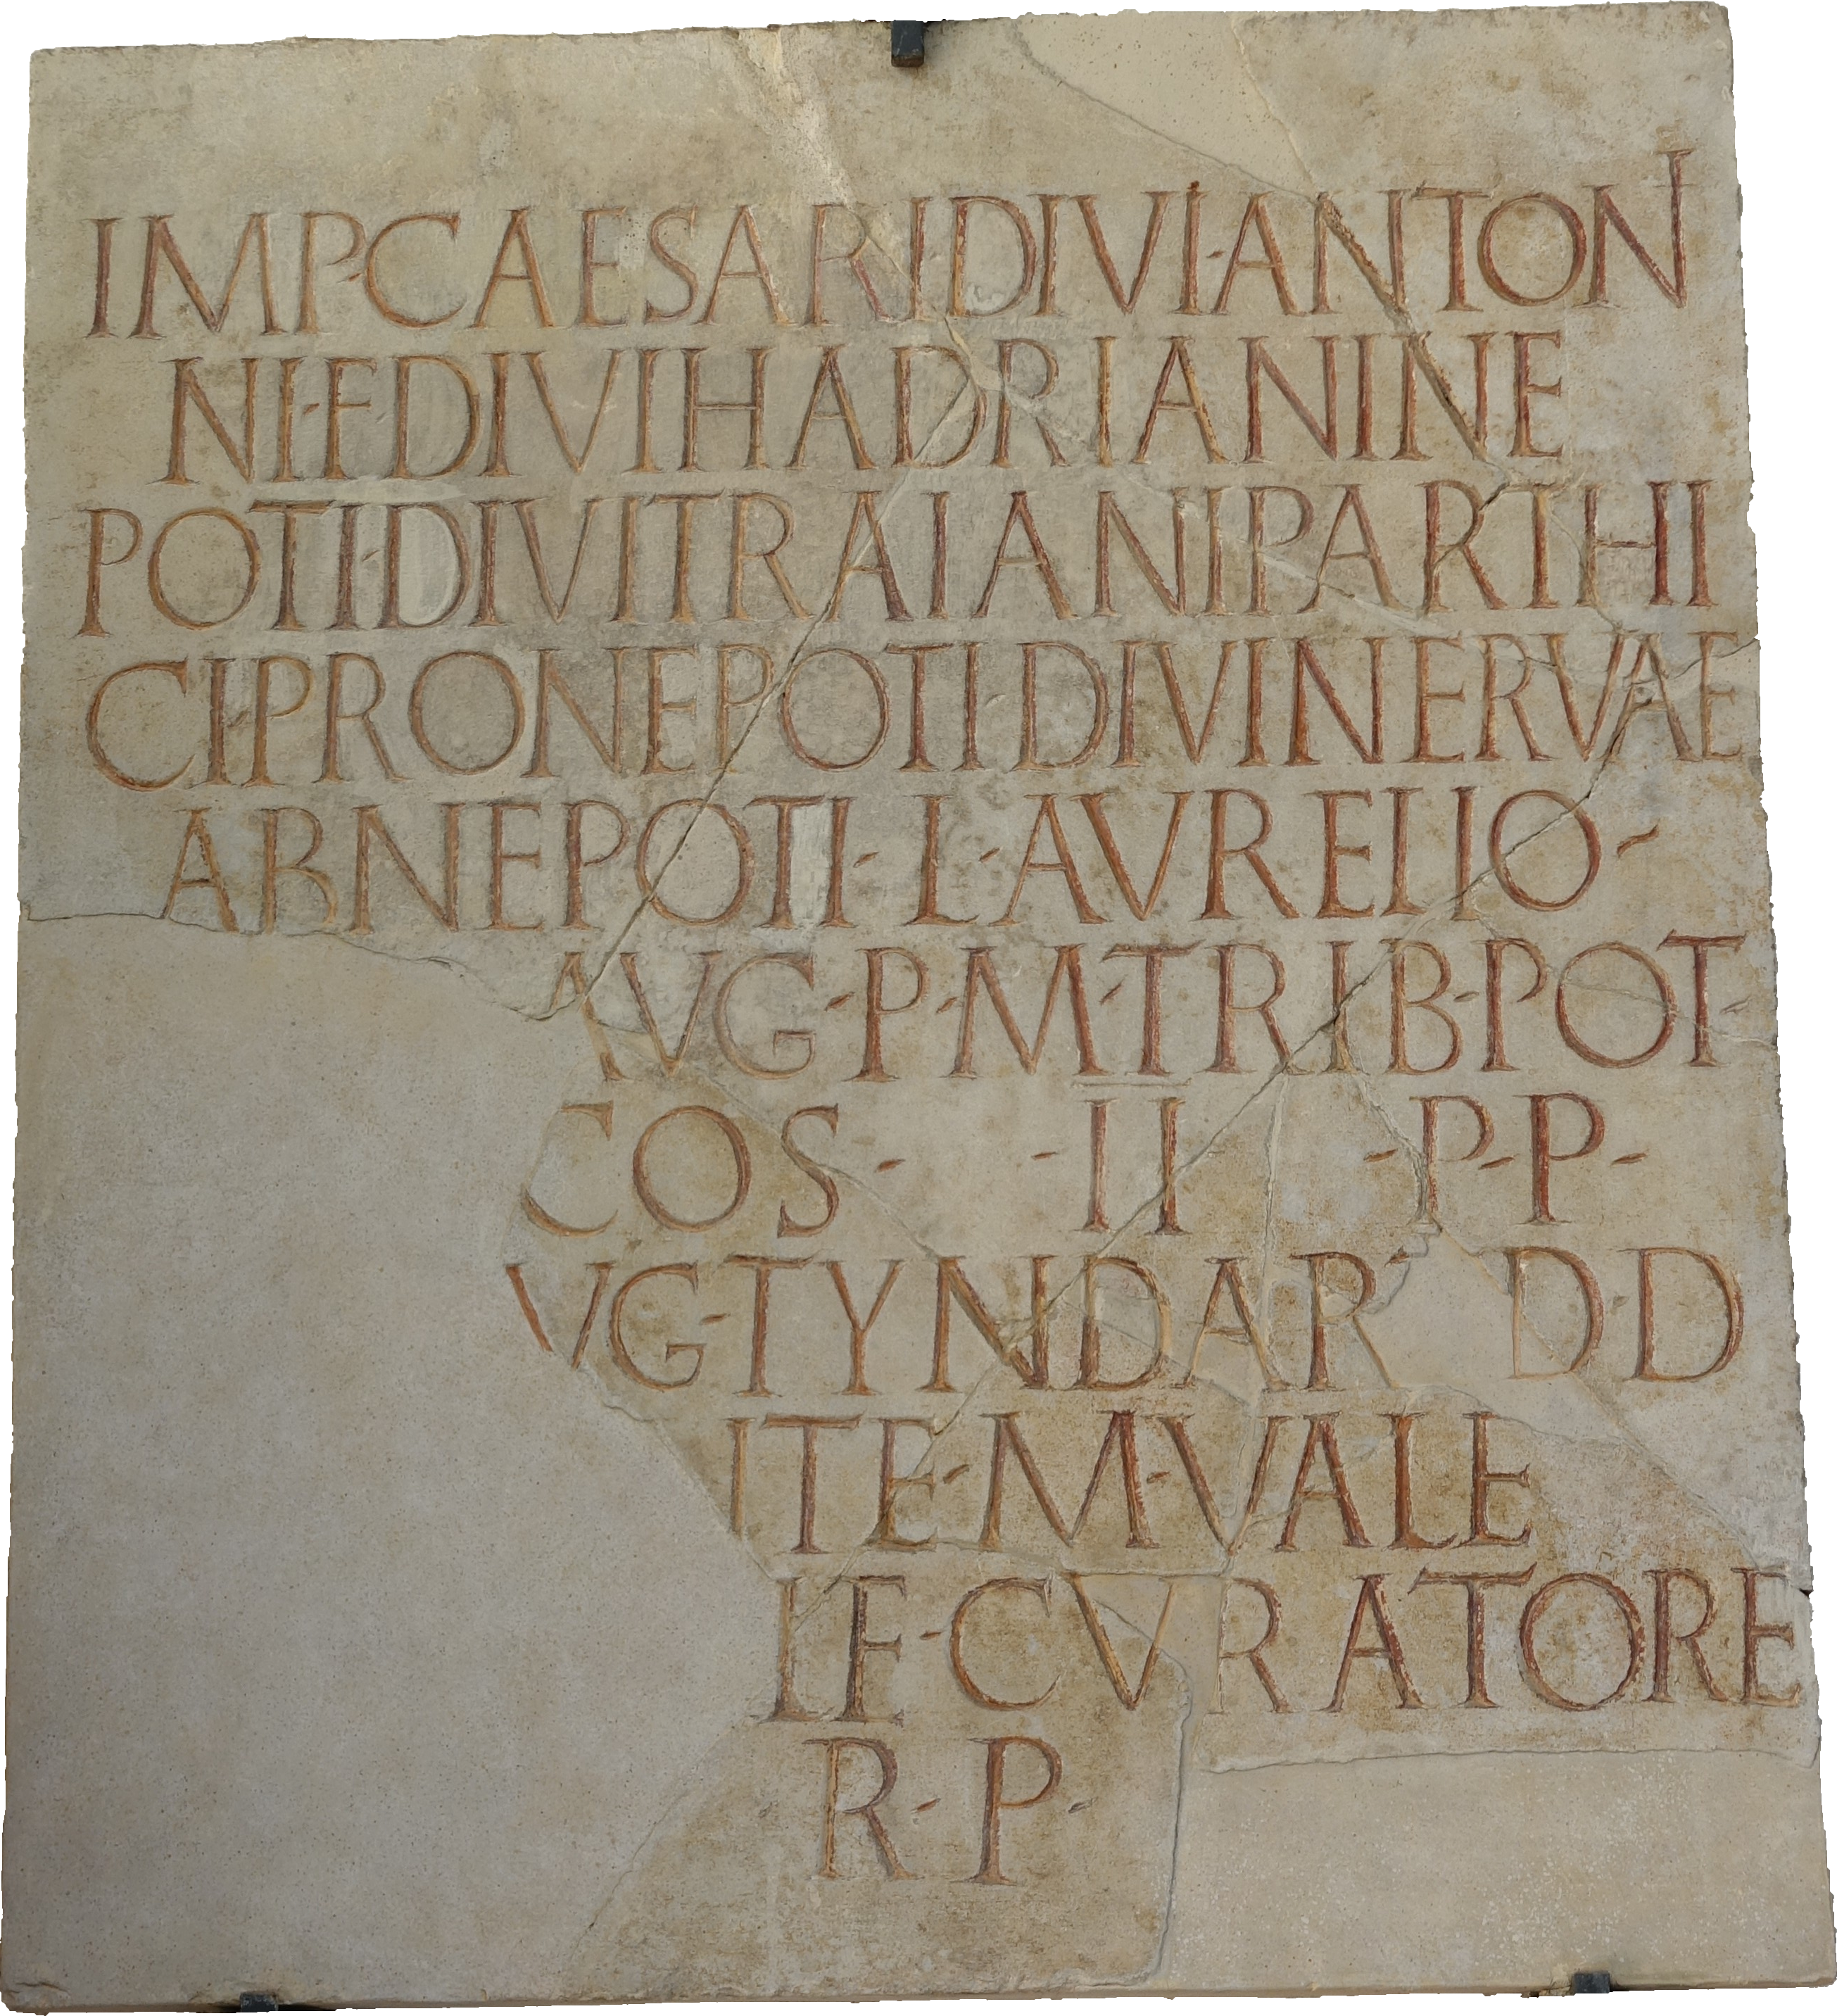 IMP·CAESARI DIVI·ANTON
NI·F·DIVI HADRIANI NE
POTI·DIVI TRAIANI PARTHI
CI·PRONEPOTI·DIVI NERVAE
ABNEPOTI·L·AVRELIO·
AVG·P·M·TRIB·POT·
COS· ·II ·P·P·
VG·TYNDAR D·D
ITE·M·VALE
IF·CVRATORE
R·P·